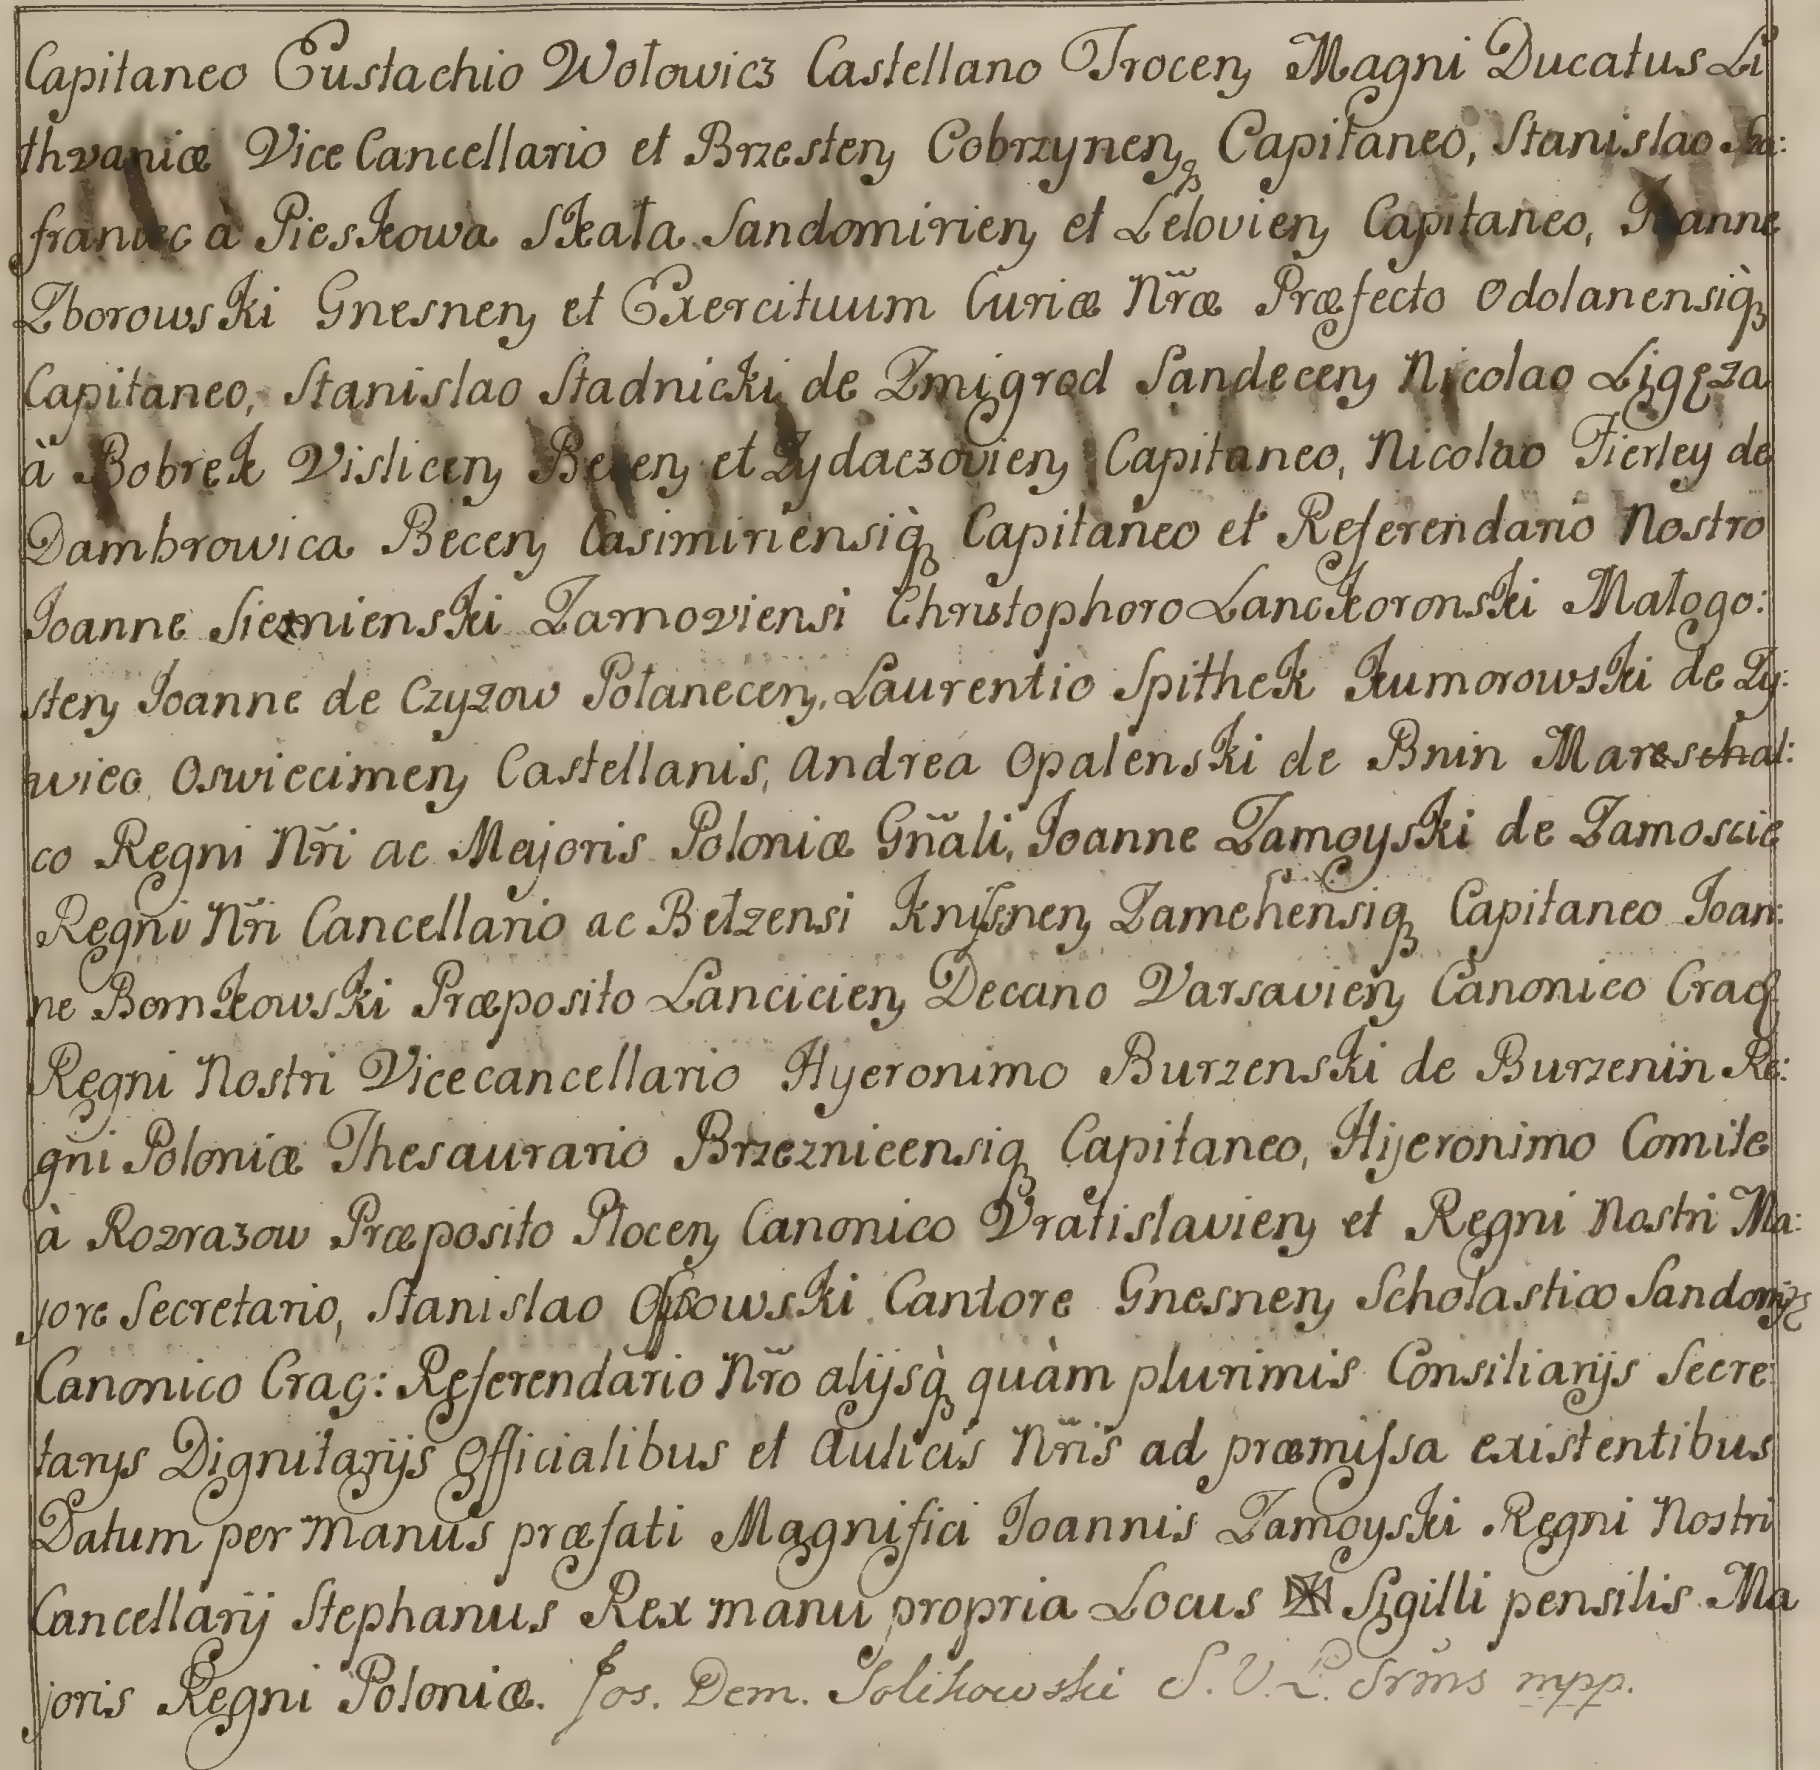 Capitaneo Eustachio Wołowicz Castellano Trocen, Magni Ducatus Li
thvaniæ Vice Cancellario et Brzesten, Cobrzynenq, Capitaneo, Stanislao Sza:
franiec à Pieskowa Skała Sandomirien, et Lelovien, Capitaneo, Joanne
Zborowski Gnesnen, et Exercituum Curiæ Nr̃æ Præfecto Odolanensiq̀
Capitaneo, Stanislao Stadnicki de Zmigrod Sandecen, Nicolao Ligęza
à Bobrek Vislicen, Becen, et Zydaczovien, Capitaneo, Nicolao Fierley de
Dambrowica Becen, Casimiriensiq̀ Capitaneo et Referendario Nostro
Joanne Siemienski Zarnoviensi Christophoro Lanckoronski Małogo:
sten, Joanne de Czyzow Połanecen, Laurentio Spithek Kumorowski de Zy:
wiec Oswiecimen, Castellanis, Andrea Opalenski de Bnin Mareschal:
co Regni Nr̃i ac Majoris Poloniæ Gñali, Joanne Zamoyski de Zamoscie
Regni Nr̃i Cancellario ac Bełzensi Knÿsnen, Zamehensiq, Capitaneo Joan:
ne Bornkowski Præposito Lancicien, Decano Varsavien, Canonico Crac,
Regni Nostri Vicecancellario Hyeronimo Burzenski de Burzenin Re:
gni Poloniæ Thesaurario Brzeznicensiq, Capitaneo, Hijeronimo Comite
à Rozrazow Præposito Płocen, Canonico Vratislavien, et Regni Nostri Ma:
jore Secretario, Stanislao Ossowski Cantore Gnesnen, Scholastico Sandom,
Canonico Crac: Referendario Nr̃o alijsq̀ quàm plurimis Consiliarijs Secre
tarijs Dignitarijs Officialibus et Aulicis Nr̃is ad præmissa existentibus
Datum per manus præfati Magnifici Joannis Zamoyski Regni Nostri
Cancellarij Stephanus Rex manu propria Locus ✠ Sigilli pensilis Ma
joris Regni Poloniæ. Jos. Dem. Solikowski S. V. L. Srm̃s mpp.